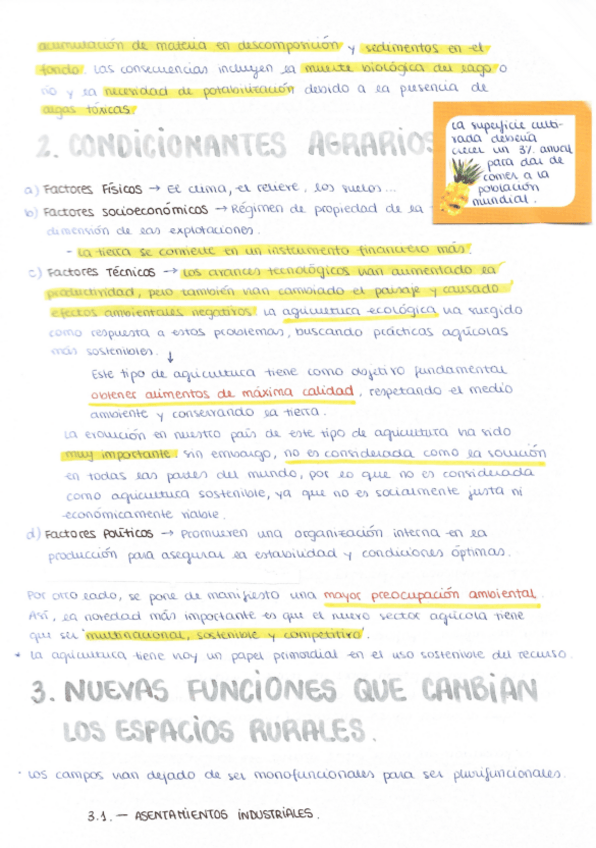 acumulación de materia en descomposición y sedimentos en el
fondo. Las consecuencias incluyen la muerte biológica del lago o
río y la necesidad de potabilización debido a la presencia de
algas tóxicas.
2. CONDICIONANTES AGRARIOS
La superficie culti-
vada debería
crecer un 3% anual
para dar de
comer a la
población
mundial.
a) Factores Físicos → El clima, el relieve, los suelos...
b) Factores socioeconómicos → Régimen de propiedad de la
dimensión de las explotaciones.
- La tierra se convierte en un instrumento financiero más.
c) Factores Técnicos → Los avances tecnológicos han aumentado la
productividad, pero también han cambiado el paisaje y causado
efectos ambientales negativos. La agricultura ecológica ha surgido
como respuesta a estos problemas, buscando prácticas agrícolas
más sostenibles. ↓
Este tipo de agricultura tiene como objetivo fundamental
obtener alimentos de máxima calidad, respetando el medio
ambiente y conservando la tierra.
La evolución en nuestro país de este tipo de agricultura ha sido
muy importante. Sin embargo, no es considerada como la solución
en todas las partes del mundo, por lo que no es considerada
como agricultura sostenible, ya que no es socialmente justa ni
económicamente viable.
d) Factores Políticos → Promueven una organización interna en la
producción para asegurar la estabilidad y condiciones óptimas.
Por otro lado, se pone de manifiesto una mayor preocupación ambiental.
Así, la novedad más importante es que el nuevo sector agrícola tiene
que ser "multinacional, sostenible y competitivo".
* La agricultura tiene hoy un papel primordial en el uso sostenible del recurso.
3. NUEVAS FUNCIONES QUE CAMBIAN
LOS ESPACIOS RURALES.
· Los campos han dejado de ser monofuncionales para ser plurifuncionales.
3.1. — ASENTAMIENTOS INDUSTRIALES.